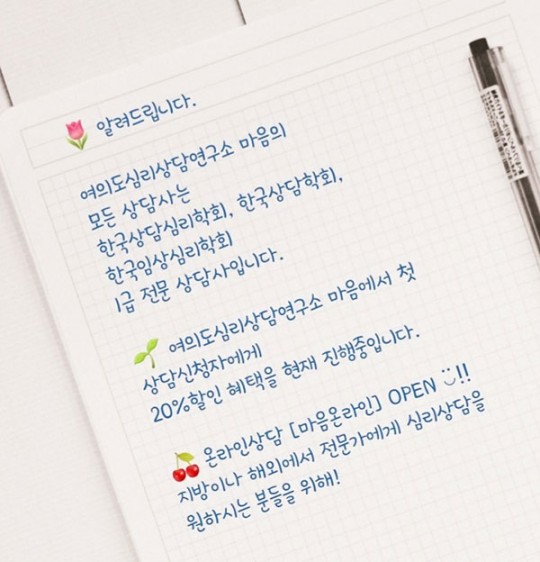 🌷 알려드립니다.
여의도심리상담연구소 마음의
모든 상담사는
한국상담심리학회, 한국상담학회,
한국임상심리학회
1급 전문 상담사입니다.
🌱 여의도심리상담연구소 마음에서 첫
상담신청자에게
20%할인 혜택을 현재 진행중입니다.
🍒 온라인상담 [마음온라인] OPEN ü!!
지방이나 해외에서 전문가에게 심리상담을
원하시는 분들을 위해!